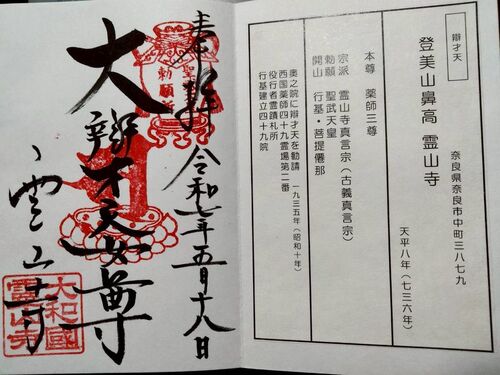 辯才天
登美山鼻高 霊山寺
奈良県奈良市中町三八七九
天平八年(七三六年)
本尊 薬師三尊
宗派 霊山寺真言宗(古義真言宗)
勅願 聖武天皇
開山 行基・菩提僊那
奥之院に辯才天を勧請 一九三五年(昭和十年)
西国薬師四十九霊場第二番
役行者霊蹟札所
行基建立四十九院
奉拝 令和七年五月十八日
聖武
勅願所
大辯才天女尊
霊山寺
大和國
霊山寺